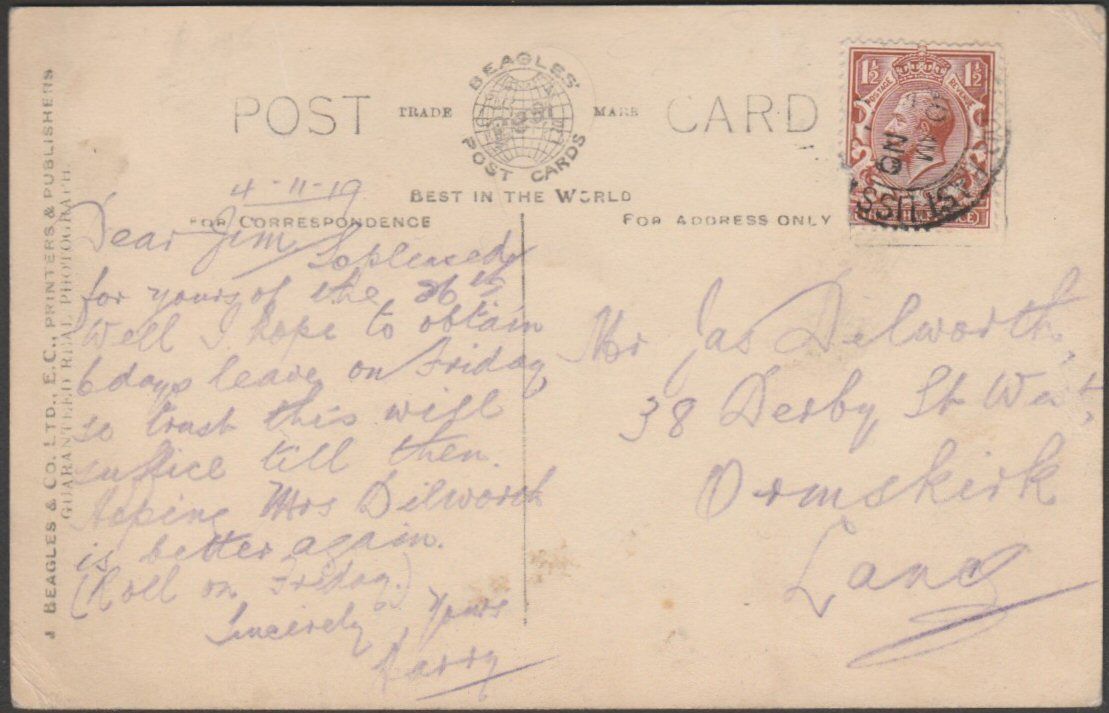 POST CARD
TRADE MARK
BEAGLES'
POST CARDS
BEST IN THE WORLD
FOR CORRESPONDENCE
FOR ADDRESS ONLY
J. BEAGLES & CO. LTD., E.C., PRINTERS & PUBLISHERS
GUARANTEED REAL PHOTOGRAPH.
1½ 1½
POSTAGE REVENUE
4-11-19
Dear Jim,
So pleased
for yours of the 26th
Well I hope to obtain
6 days leave on Friday,
so trust this will
suffice till then.
Hoping Mrs Dilworth
is better again.
(Roll on Friday.)
Sincerely Yours
Harry
Mr Jas Dilworth,
38 Derby St West,
Ormskirk
Lancs